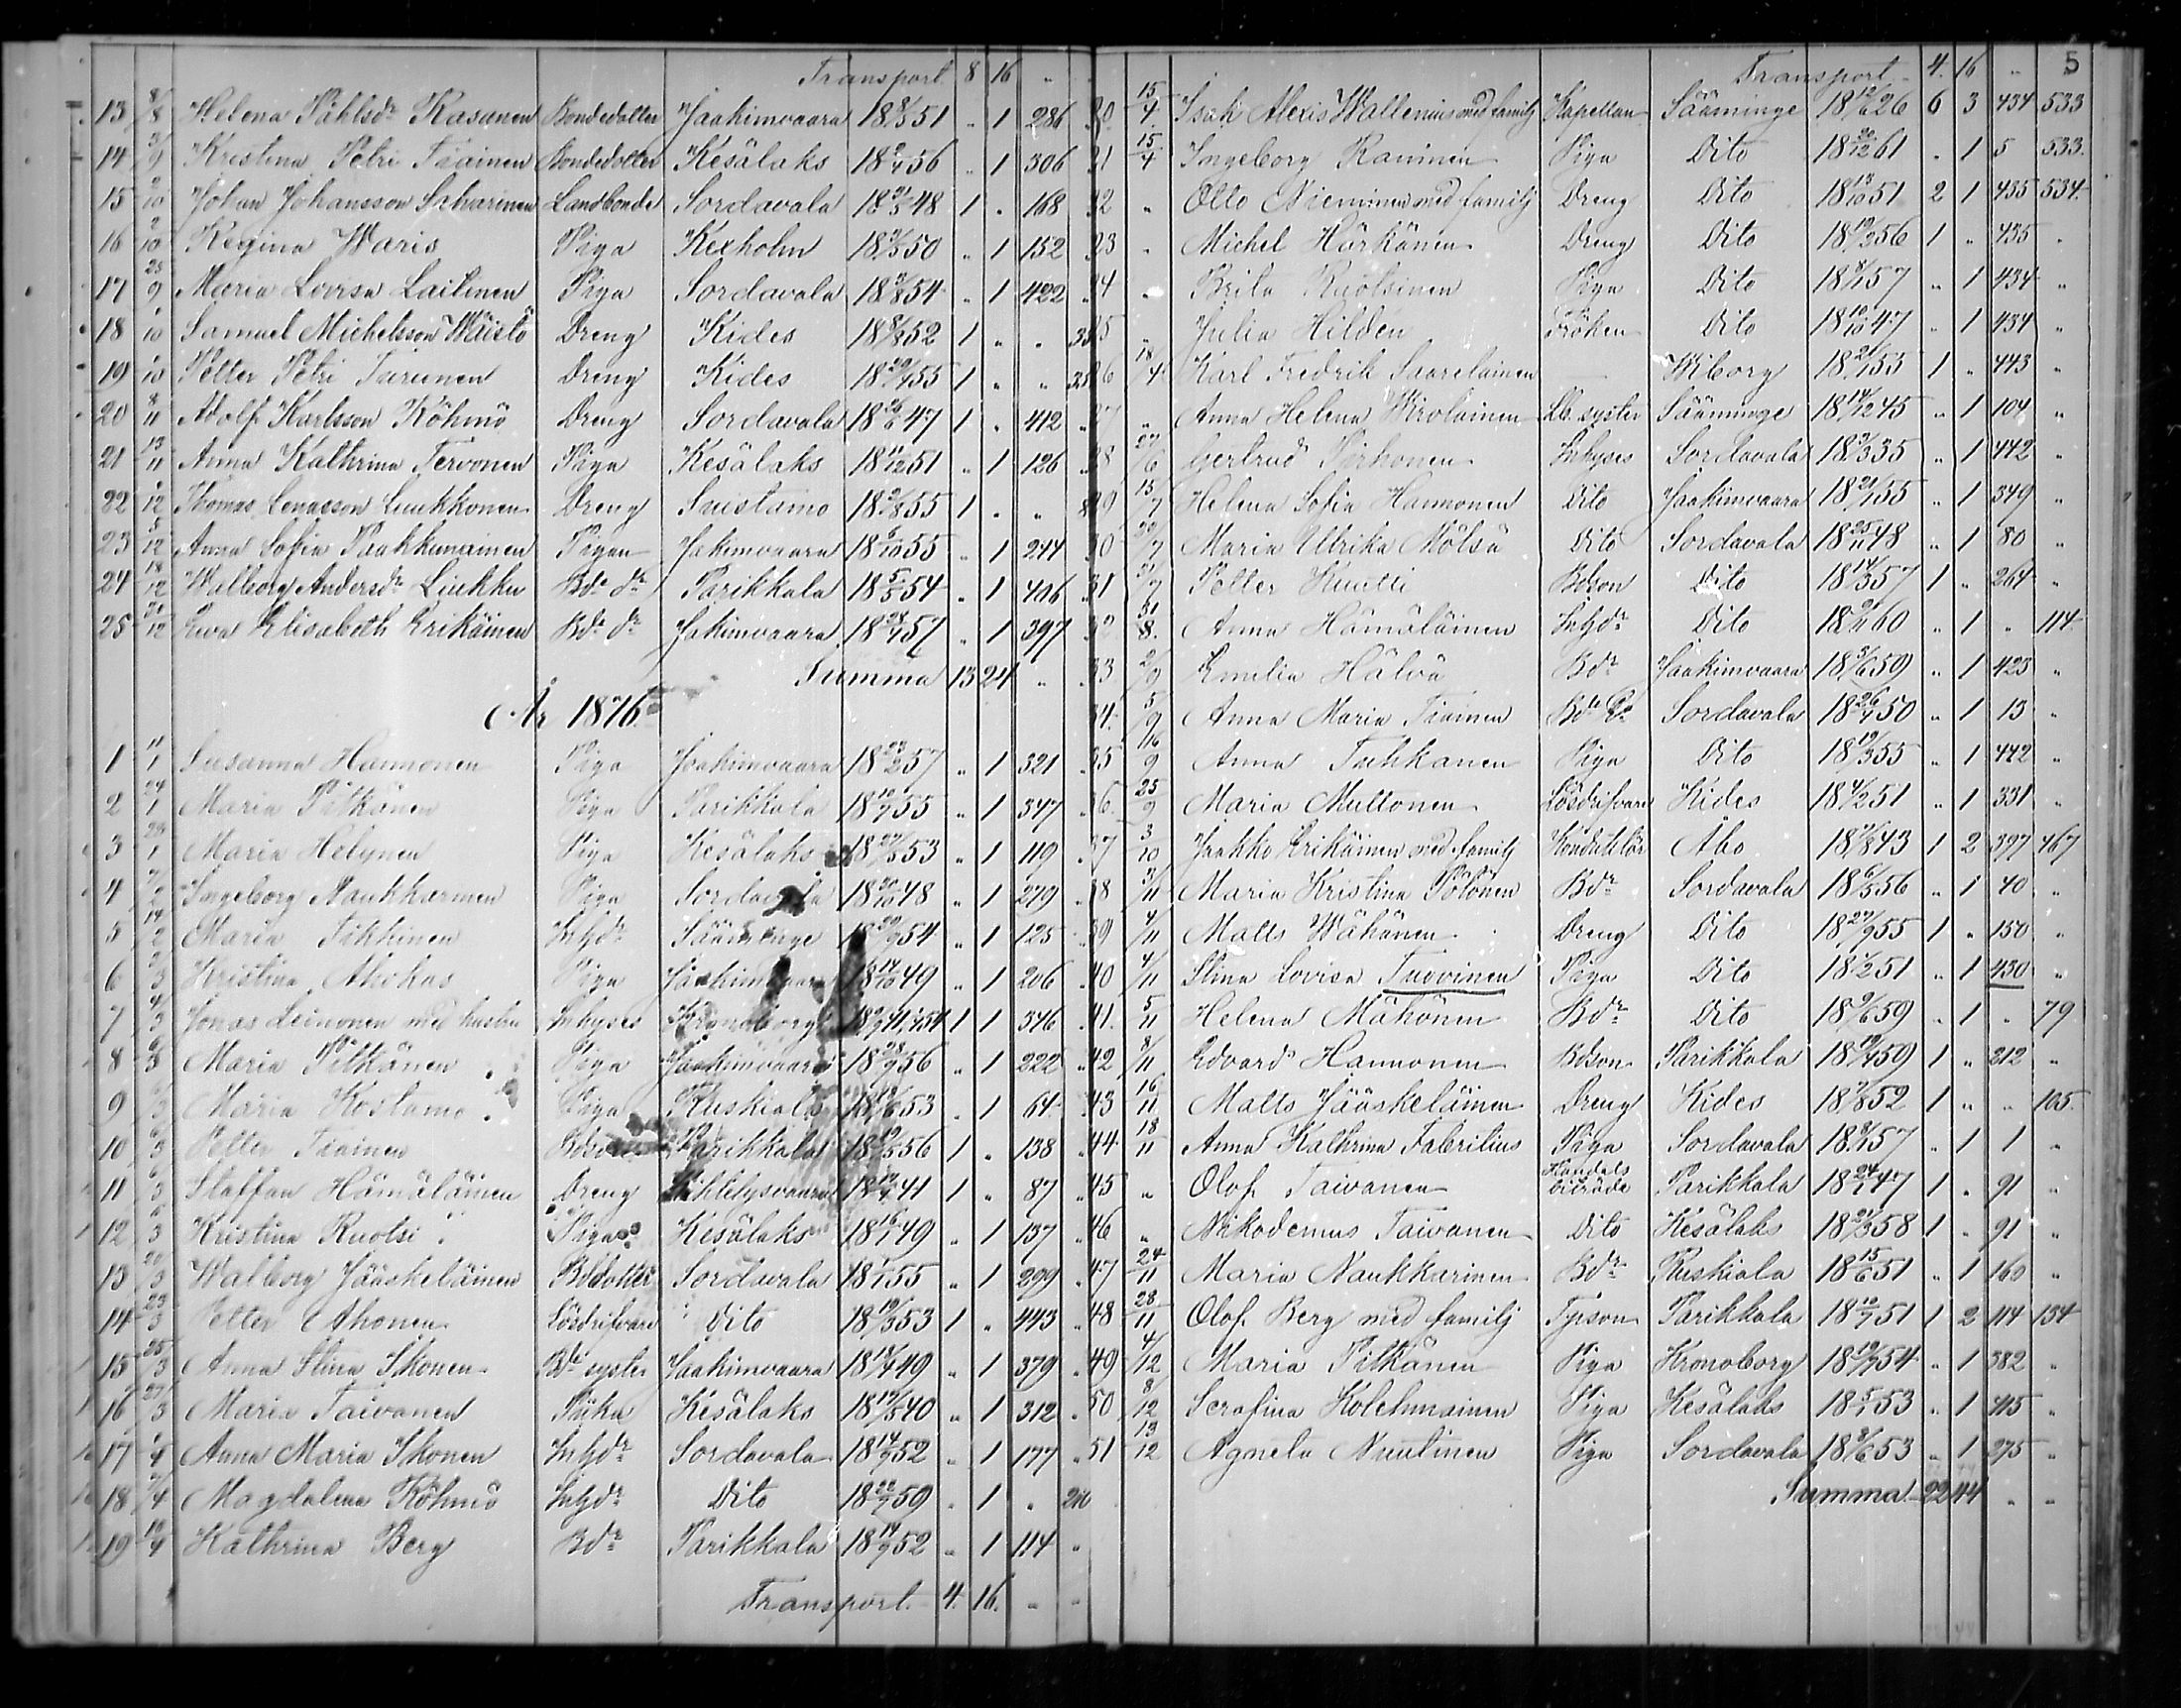 Transport 8 16 "
13 8/8 Helena Påhlsdr Kasanen Bondedotter Jaakimvaara 18 8/3 51 " 1 286
14 3/9 Kristina Petri Tiainen Bondedotter Kesälaks 18 2/4 56 " 1 306
15 2/10 Johan Johansson Saharinen Landbonde Sordavala 18 21/3 48 1 " 168
16 2/10 Regina Waris Piga Kexholm 1850 " 1 152
17 25/9 Maria Lovisa Laitinen Piga Sordavala 1854 " 1 422
18 1/10 Samuel Michelsson Wäistö Dreng Kides 1852 1 " "
19 1/10 Petter Petri Turunen Dreng Kides 18 29/4 55 1 " "
20 8/11 Adolf Karlsson Köhmö Dreng Sordavala 18 26/6 47 1 " 412
21 13/11 Anna Kathrina Tervonen Piga Kesälaks 18 11/12 51 " 1 126
22 1/12 Thomas Lenasson Luukkonen Dreng Suistamo 1855 1 " "
23 5/12 Anna Sofia Paakkunainen Pigan Jakimvaara 18 6/10 55 " 1 244
24 18/12 Walborg Andersdr Liukku Bde dr Parikkala 18 5/5 54 " 1 406
25 31/12 Ewa Elisabeth Erikäinen Bde dr Jakimvaara 18 24/4 57 " 1 397
Summa 13 24 "
År 1876
1 11/1 Susanna Hannonen Piga Joakimvaara 18 23/2 57 " 1 321
2 24/1 Maria Pitkänen Piga Parikkala 18 10/7 55 " 1 347
3 28/1 Maria Helynen Piga Kesälaks 1853 " 1 119
4 7/2 Ingeborg Naukkarinen Piga Sordavala 18 20/10 48 " 1 279
5 14/2 Maria Tikkinen Inhdr Sääminge 18 29/9 54 " 1 125
6 Kristina Ahokas Piga Jaakimvaara 18 14/10 49 " 1 206
7 4/3 Jonas Leinonen med hustru Inhyses Kronoborg 1 1 346
8 6/3 Maria Pitkänen Piga Jaakimvaara 18 28/9 56 " 1 222
9 6/3 Maria Kostamo Piga Ruskiala 1853 " 1 64
10 6/3 Petter Tiainen Bdson Parikkala 1856 1 " 138
11 6/3 Staffan Hämäläinen Dreng Kihtelysvaara 1841 1 " 87
12 6/3 Kristina Ruotsi Piga Kesälaks 18 16/4 49 " 1 137
13 20/3 Walborg Jääskeläinen Bddotter Sordavala 1855 " 1 299
14 23/3 Petter Ahonen Lösdrifvare Dito 18 19/3 53 1 " 443
15 25/3 Anna Stina Ikonen Bde syster Jaakimvaara 1849 " 1 379
16 27/3 Maria Taivanen Piika Kesälaks 18 19/5 40 " 1 312
17 1/4 Anna Maria Ikonen Inhdr Sordavala 18 14/9 52 " 1 177
18 7/4 Magdalena Köhmö Inhdr Dito 18 22/7 59 " 1 "
19 10/4 Kathrina Berg Bdr Parikkala 18 14/9 52 " 1 114
Transport 4 16 " "
5
Transport 4 16 "
20 15/4 Isak Alexis Wallenius med familj Kapellan Sääminge 18 12/6 26 6 3 434 533
21 15/4 Ingeborg Raninen Piga Dito 18 20/12 61 " 1 5 533
22 " Otto Nieminen med familj Dreng Dito 18 13/10 51 2 1 435 534
23 " Michel Härkönen Dreng Dito 18 19/2 56 1 " 435 "
24 " Brita Ruotsinen Piga Dito 18 8/1 57 " 1 434 "
25 " Julia Hildén Fröken Dito 18 10/10 47 " 1 434 "
26 18/4 Karl Fredrik Saarelainen Wiborg 18 21/1 55 1 " 443 "
27 " Anna Helena Wirolainen Lb. syster Sääminge 18 14/12 45 " 1 104 "
28 27/6 Gertrud Pirhonen Inhyses Sordavala 18 3/3 35 " 1 442 "
29 15/7 Helena Sofia Hannonen Dito Jaakimvaara 18 21/1 55 " 1 349 "
30 22/7 Maria Ullrika Mölsä Dito Sordavala 18 25/11 48 " 1 80 "
31 31/7 Petter Kuutti Bdson Dito 18 14/3 57 1 " 264 "
32 31/8 Anna Hämäläinen Inhdr Dito 1860 " 1 " 114
33 2/9 Emilia Hälvä Bdr Jaakimvaara 18 3/6 59 " 1 423 "
34 5/9 Anna Maria Tiainen Sordavala 18 26/4 50 " 1 13 "
35 16/9 Anna Tuhkanen Piga Dito 18 19/3 55 " 1 442 "
36 25/9 Maria Muttonen Lösdrifvare Kides 18 4/2 51 " 1 331 "
37 3/10 Jaakko Erikäinen med familj Åbo 1843 1 2 397 467
38 3/11 Maria Kristina Pölönen Bdr Sordavala 18 6/5 56 " 1 40 "
39 4/11 Matts Wäkönen Dreng Dito 18 29/9 55 1 " 150 "
40 4/11 Stina Lovisa Tuovinen Piga Dito 18 1/2 51 " 1 430 "
41 5/11 Helena Mäkönen Bdr Dito 18 9/6 59 " 1 " 79
42 8/11 Edvard Hannonen Bdson Parikkala 1859 1 " 212 "
43 16/11 Matts Jääskeläinen Dreng Kides 18 7/8 52 1 " " 105
44 18/11 Anna Kathrina Fabritius Piga Sordavala 18 8/1 57 " 1 1 "
45 " Olof Taivanen Handels biträde Parikkala 18 24/1 47 1 " 91 "
46 " Nikodemus Taivanen Dito Kesälaks 18 21/3 58 1 " 91 "
47 24/11 Maria Naukkarinen Bdr Ruskiala 18 15/6 51 " 1 160 "
48 28/11 Olof Berg med familj Tpson Parikkala 18 10/7 51 1 2 114 134
49 4/12 Maria Pitkänen Piga Kronoborg 1854 " 1 382 "
50 8/12 Serafina Kolehmainen Piga Kesälaks 18 5/1 53 " 1 415 "
51 13/12 Agneta Nuutinen Piga Sordavala 18 8/6 53 " 1 275 "
Summa 22 44 " "